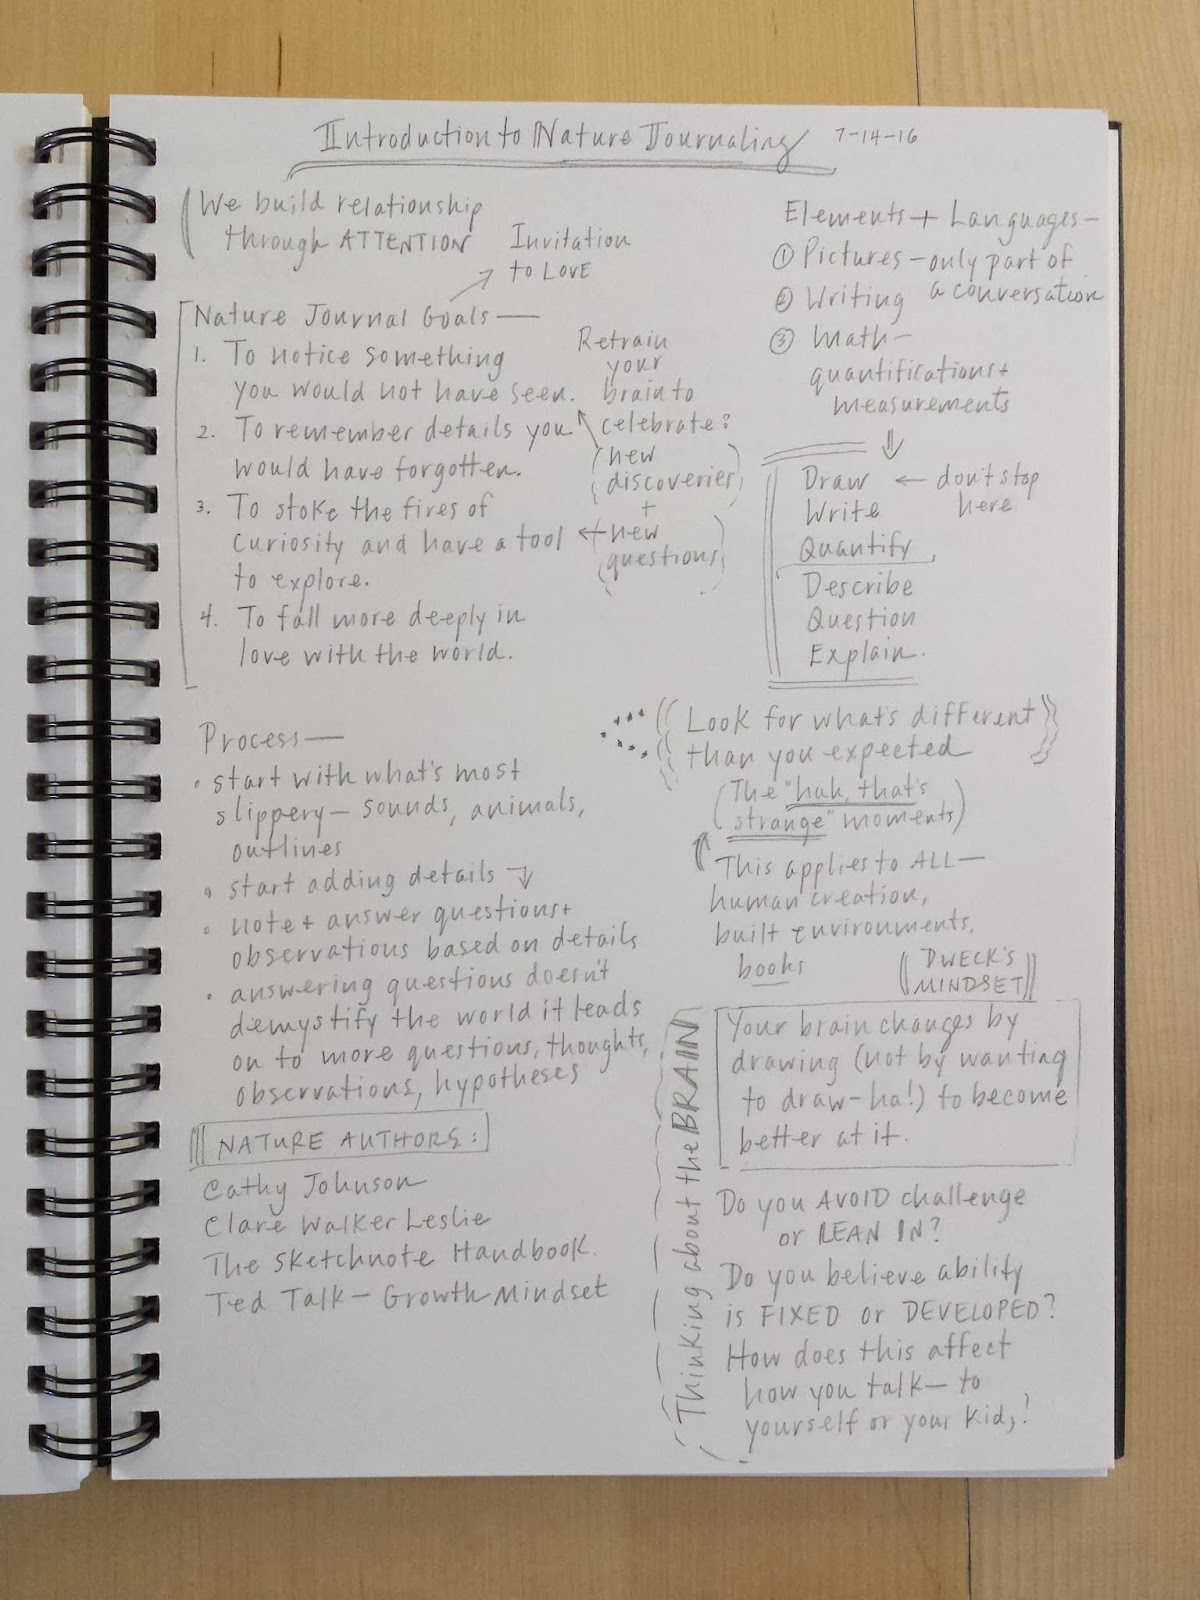 Introduction to Nature Journaling 7-14-16
We build relationship
through ATTENTION
Invitation
to LOVE
Nature Journal Goals —
1. To notice something
you would not have seen.
2. To remember details you
would have forgotten.
3. To stoke the fires of
curiosity and have a tool
to explore.
4. To fall more deeply in
love with the world.
Retrain
your
brain to
celebrate:
(new
discoveries)
+
(new
questions)
Elements + Languages —
① Pictures — only part of
② Writing a conversation
③ Math —
quantifications +
measurements
Draw ← don't stop
Write here
Quantify
Describe
Question
Explain.
Process —
• start with what's most
slippery — sounds, animals,
outlines
• start adding details ↓
• note + answer questions +
observations based on details
• answering questions doesn't
demystify the world it leads
on to more questions, thoughts,
observations, hypotheses
NATURE AUTHORS:
Cathy Johnson
Clare Walker Leslie
The Sketchnote Handbook.
Ted Talk — Growth Mindset
Look for what's different
than you expected
(The "huh, that's
strange" moments)
This applies to ALL —
human creation,
built environments,
books
DWECK'S
MINDSET
Thinking about the BRAIN
Your brain changes by
drawing (not by wanting
to draw - ha!) to become
better at it.
Do you AVOID challenge
or LEAN IN?
Do you believe ability
is FIXED or DEVELOPED?
How does this affect
how you talk — to
yourself or your kids?